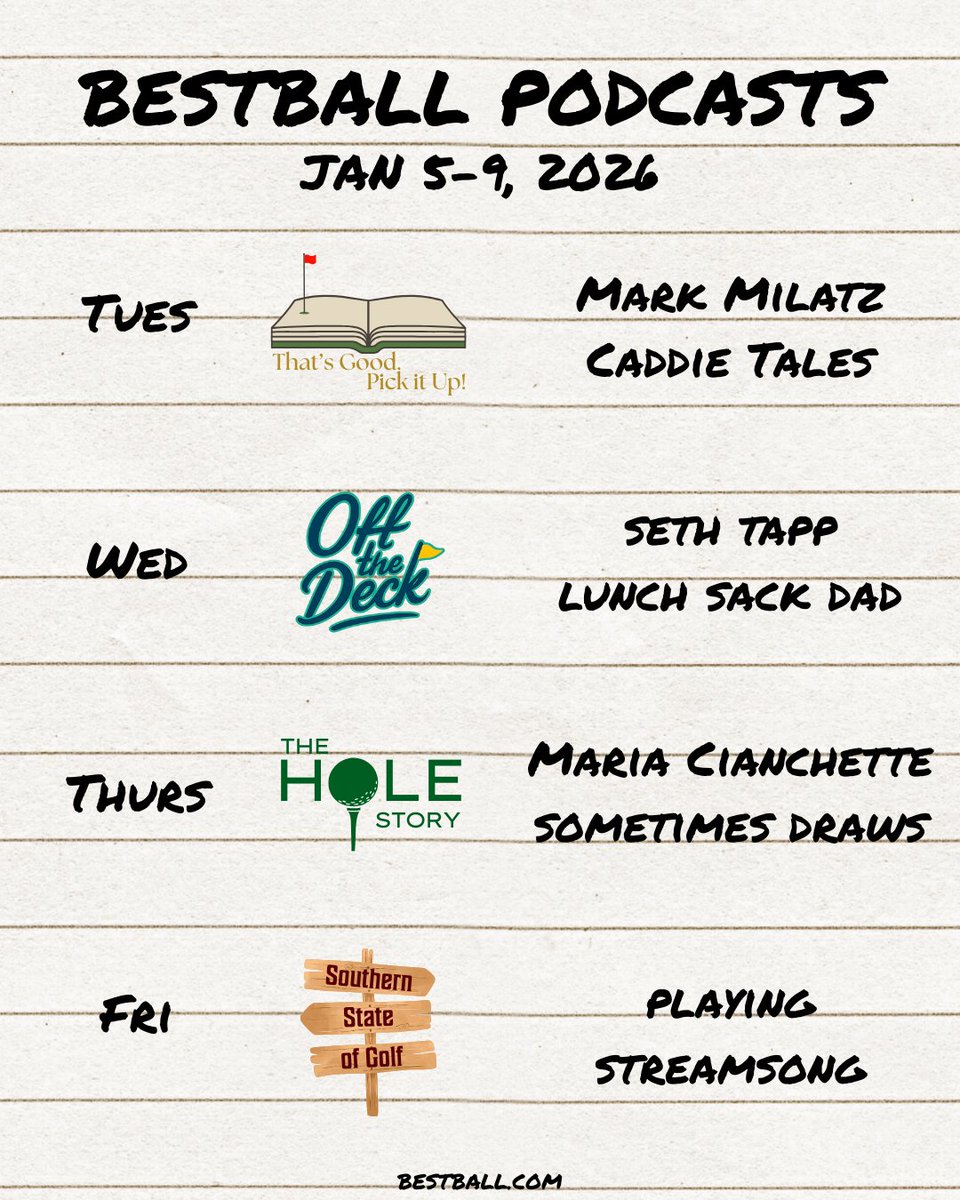 BESTBALL PODCASTS
JAN 5-9, 2026
TUES
That's Good,
Pick it Up!
MARK MILATZ
CADDIE TALES
WED
Off
the
Deck
SETH TAPP
LUNCH SACK DAD
THURS
THE
HOLE
STORY
MARIA CIANCHETTE
SOMETIMES DRAWS
FRI
Southern
State
of Golf
PLAYING
STREAMSONG
BESTBALL.COM